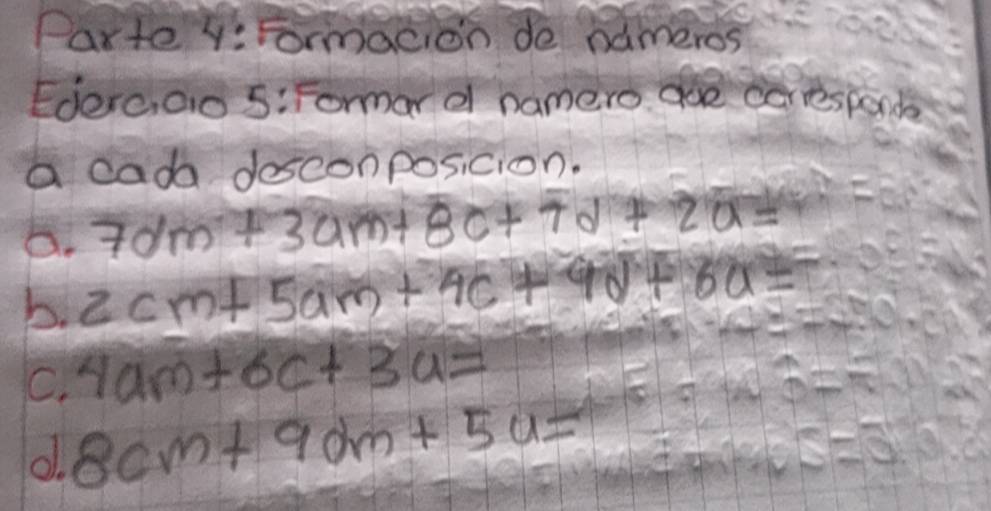 Parte 4: Formación de números
Ejercicio 5: Formar el numero que corresponda
a cada desconposicion.
a. 7dm + 3um + 8c + 7d + 2u =
b. 2cm + 5um + 4c + 9d + 6u =
c. 4um + 6c + 3u =
d. 8cm + 9dm + 5u =